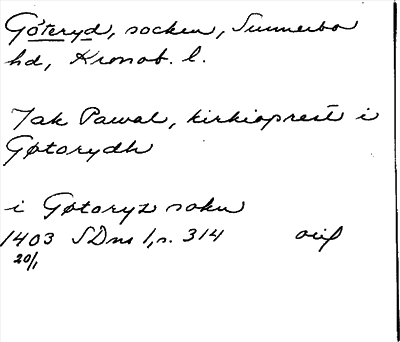 Göteryd, socken, Sunnerbo
hd, Kronob. l.
Jak Pawal, kirkioprest i
Gøtorydh
i Gøtoryz sokn
1403 SDns 1, s. 314
20/1